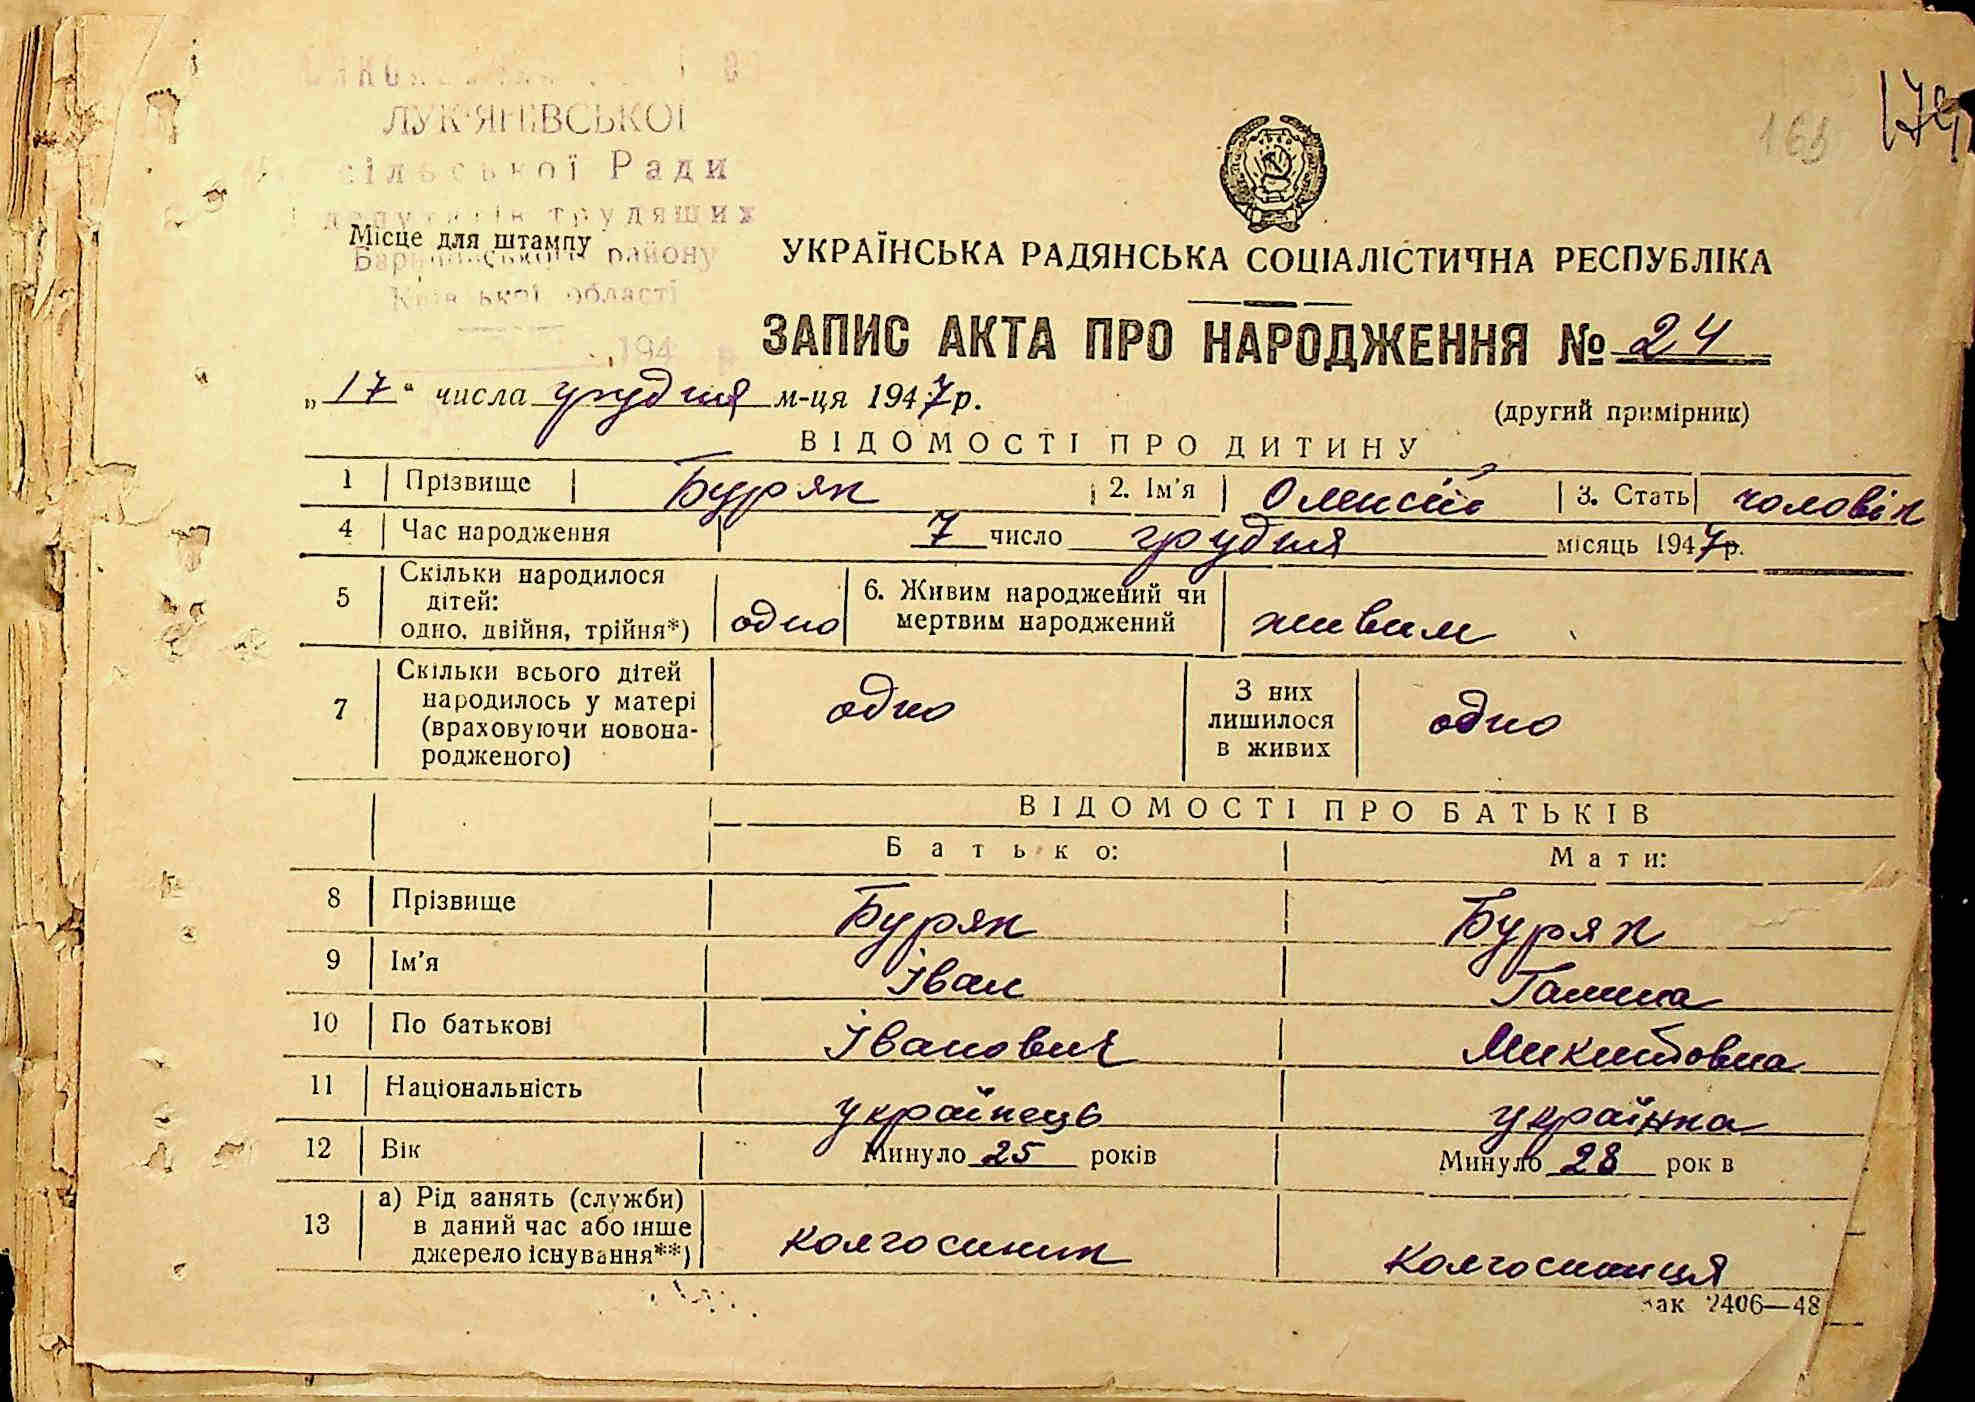 ЛУК'ЯНІВСЬКОЇ
сільської Ради
депутатів трудящих
Місце для штампу
району
Київської області
194 р
163
174
УКРАЇНСЬКА РАДЯНСЬКА СОЦІАЛІСТИЧНА РЕСПУБЛІКА
ЗАПИС АКТА ПРО НАРОДЖЕННЯ № 24
„17“ числа грудня м-ця 1947 р.
(другий примірник)
ВІДОМОСТІ ПРО ДИТИНУ
1 Прізвище Буряк 2. Ім'я Олексій 3. Стать чоловік
4 Час народження 7 число грудня місяць 1947 р.
5 Скільки народилося дітей: одно, двійня, трійня*) одно 6. Живим народжений чи мертвим народжений живим
7 Скільки всього дітей народилось у матері (враховуючи новонародженого) одно З них лишилося в живих одно
ВІДОМОСТІ ПРО БАТЬКІВ
Батько: Мати:
8 Прізвище Буряк Буряк
9 Ім'я Іван Галина
10 По батькові Іванович Микитовна
11 Національність українець українка
12 Вік Минуло 25 років Минуло 28 рок в
13 а) Рід занять (служби) в даний час або інше джерело існування**) колгоспник колгоспниця
Зак 2406—48